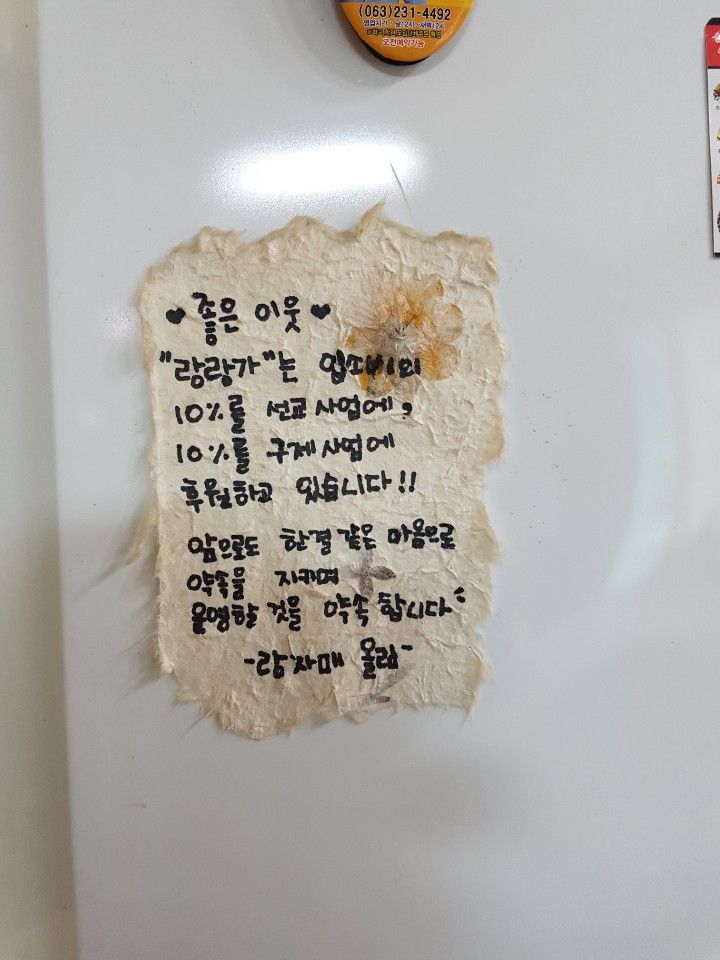 (063)231-4492
오전예약가능
♥ 좋은 이웃 ♥
"랑랑가"는 입소비의
10%를 선교 사업에,
10%를 구제 사업에
후원하고 있습니다!!
앞으로도 한결같은 마음으로
약속을 지키며
운영할 것을 약속 합니다
-랑자매 올림-